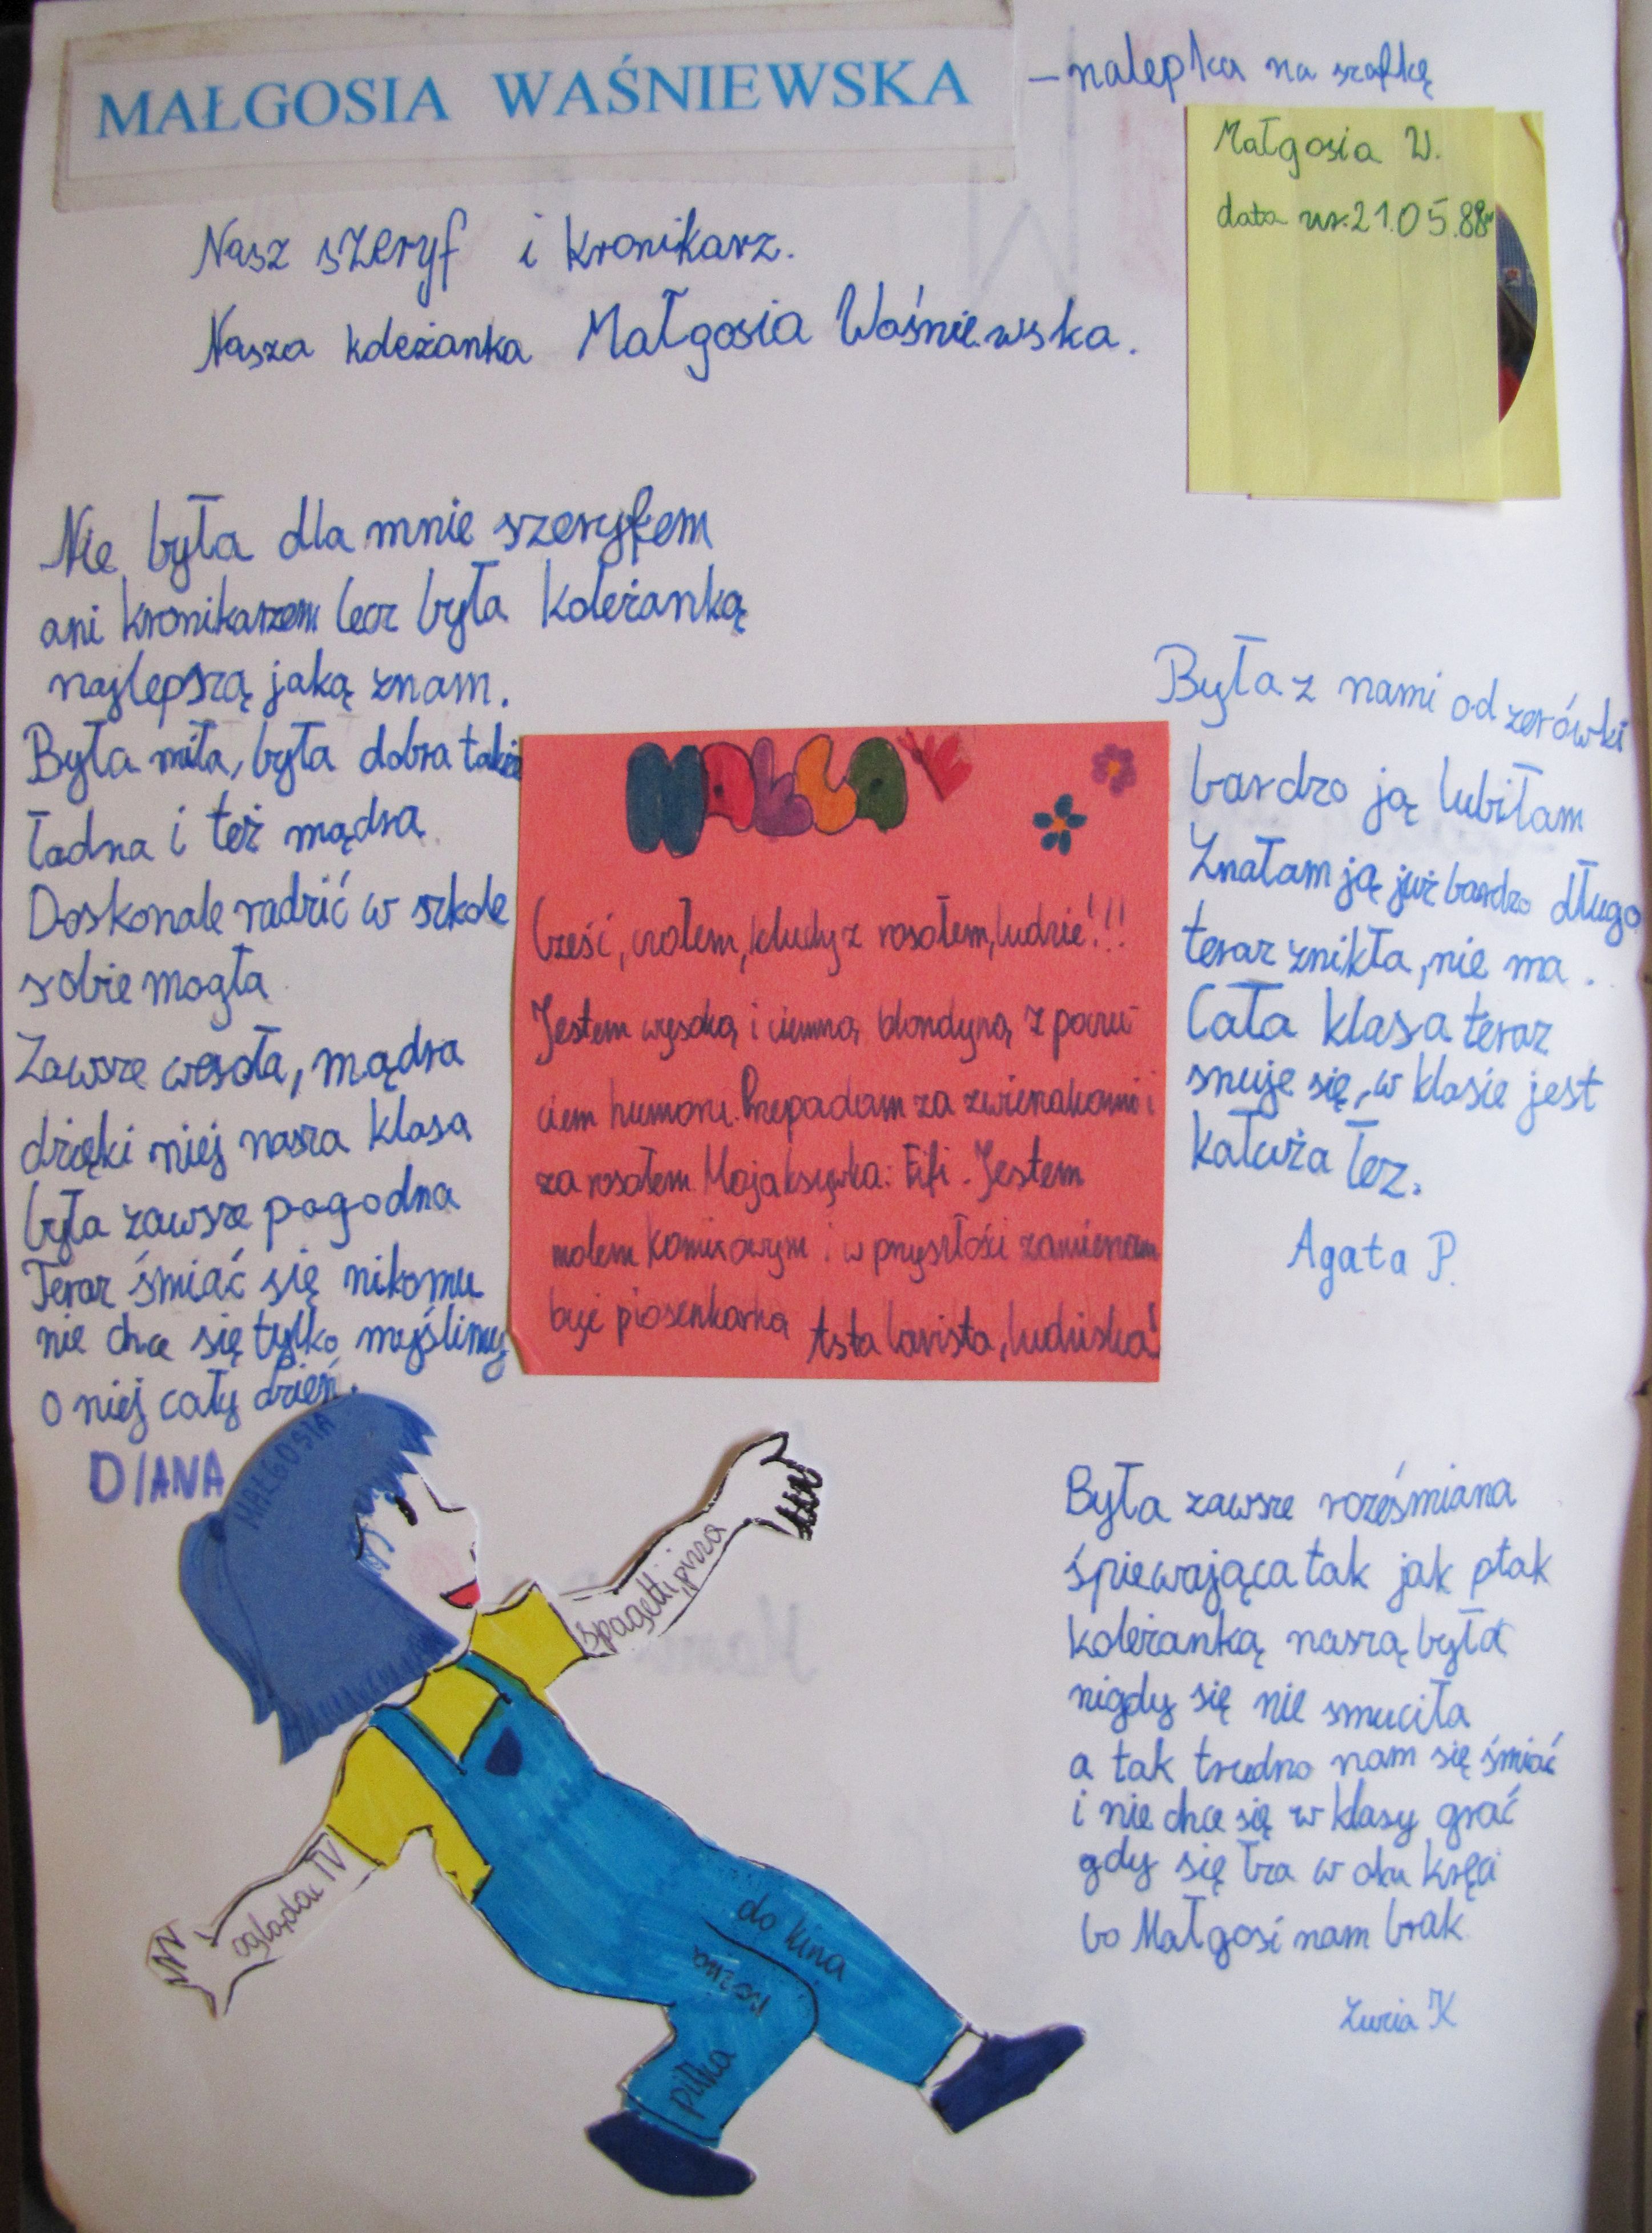 MAŁGOSIA WAŚNIEWSKA
– nalepka na szafkę
Małgosia W.
data ur. 21.05.88r
Nasz szeryf i kronikarz.
Nasza koleżanka Małgosia Waśniewska.
Nie była dla mnie szeryfem
ani kronikarzem lecz była koleżanką
najlepszą jaką znam.
Była miła, była dobra także
ładna i też mądra
Doskonale radzić w szkole
sobie mogła
Zawsze wesoła, mądra
dzięki niej nasza klasa
była zawsze pogodna
Teraz śmiać się nikomu
nie chce się tylko myślimy
o niej cały dzień.
DIANA
MAŁGO
Cześć, czołem, kluchy z rosołem, ludzie!!!
Jestem wysoką i ciemną blondyną z poczu-
ciem humoru. Przepadam za zwierzakami i
za rosołem. Moja ksywka: Fifi. Jestem
molem komixowym i w przyszłości zamierzam
być piosenkarką
Asta lavista, ludziska!
Była z nami od zerówki
bardzo ją lubiłam
Znałam ją już bardzo długo
teraz znikła, nie ma.
Cała klasa teraz
snuje się, w klasie jest
kałuża łez.
Agata P.
Była zawsze roześmiana
śpiewająca tak jak ptak
koleżanką naszą była
nigdy się nie smuciła
a tak trudno nam się śmiać
i nie chce się w klasy grać
gdy się łza w oku kręci
bo Małgosi nam brak
Zuzia K
MAŁGOSIA
spagetti, pizza
oglądać TV
do kina
nożna
piłka